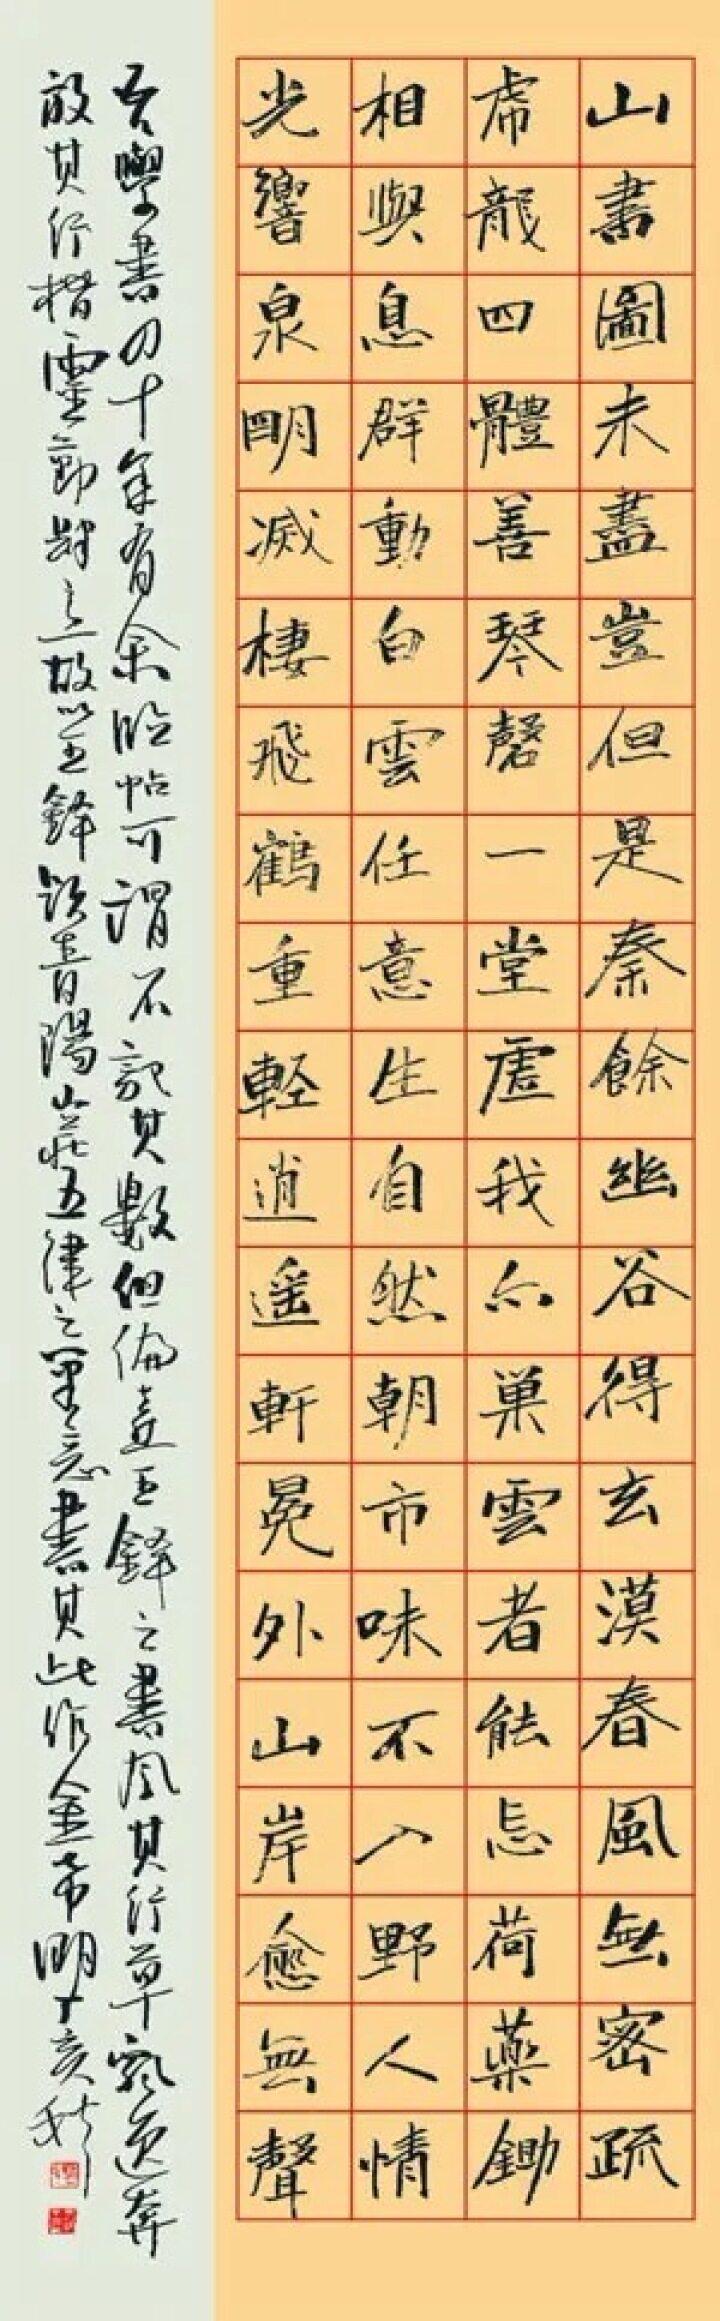 山書圖未盡豈但是秦餘幽谷得玄漠春風無密疏
虎龍四體善琴磬一堂虛我亦巢雲者能忘荷藥鋤
相與息群動白雲任意生自然朝市味不入野人情
光響泉明滅棲飛鶴重輕逍遥軒冕外山岸愈無聲
吾學書四十年有余臨帖可謂不記其數但偏喜王鐸之書風其行草飘逸奔
放其行楷靈動
故以王鐸
青陽山莊五律之筆意書其此作